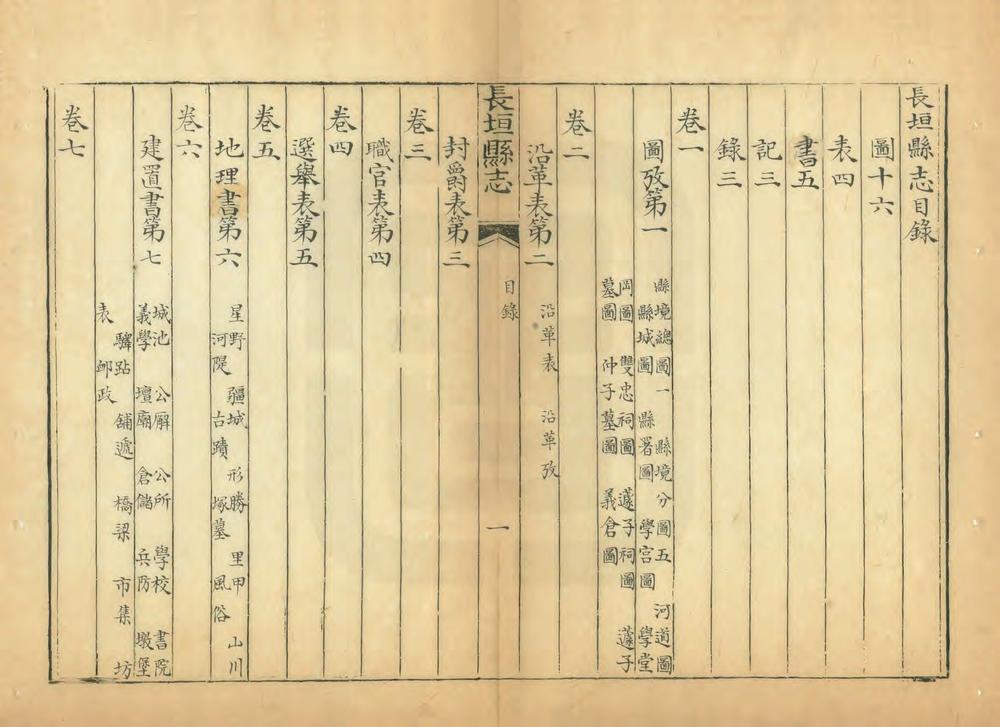 長垣縣志目錄
圖十六
表四
書五
記三
錄三
卷一
圖攷第一
縣境總圖一 縣境分圖五 河道圖
縣城圖 縣署圖 學宮圖 學堂
岡圖 雙忠祠圖 蘧子祠圖 蘧子
墓圖 仲子墓圖 義倉圖
卷二
沿革表第二 沿革表 沿革攷
長垣縣志 目錄 一
封爵表第三
卷三
職官表第四
卷四
選舉表第五
卷五
地理書第六
星野 疆域 形勝 里甲 山川
河隄 古蹟 塚墓 風俗
卷六
建置書第七
城池 公廨 公所 學校 書院
義學 壇廟 倉儲 兵防 墩堡
驛跕 舖遞 橋梁 市集 坊
表 郵政
卷七